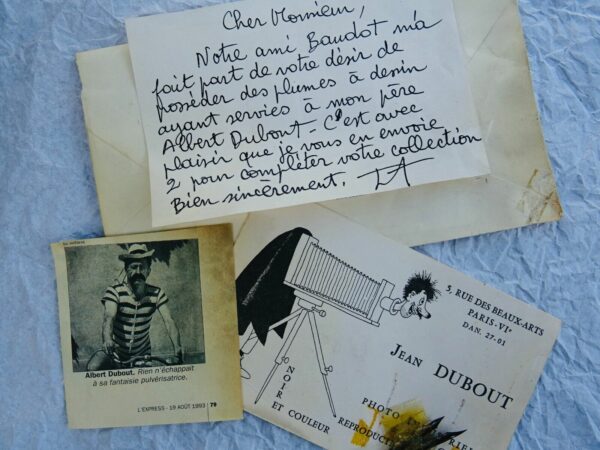 Cher Monsieur,
Notre ami Baudot m'a
fait part de votre désir de
posséder des plumes à dessin
ayant servies à mon père
Albert Dubout - C'est avec
plaisir que je vous en envoie
2 pour compléter votre collection
Bien sincèrement.
Albert Dubout. Rien n'échappait
à sa fantaisie pulvérisatrice.
L'EXPRESS - 19 AOÛT 1993 79
5, RUE DES BEAUX-ARTS
PARIS-VIe
DAN. 27-01
JEAN DUBOUT
NOIR
ET COULEUR
PHOTO
REPRODUCTION